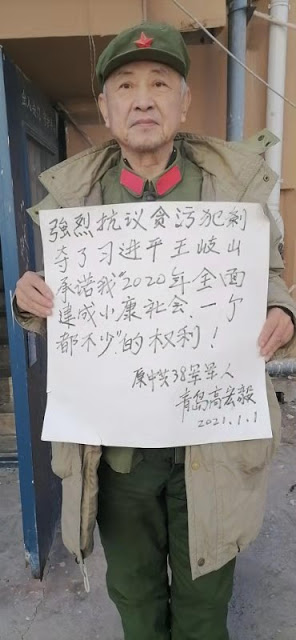 強烈抗议贪污犯剝
夺了习进平王岐山
承诺我"2020年全面
建成小康社会,一个
都不少"的权利!
原中共38军军人
青岛高宏毅
2021.1.1